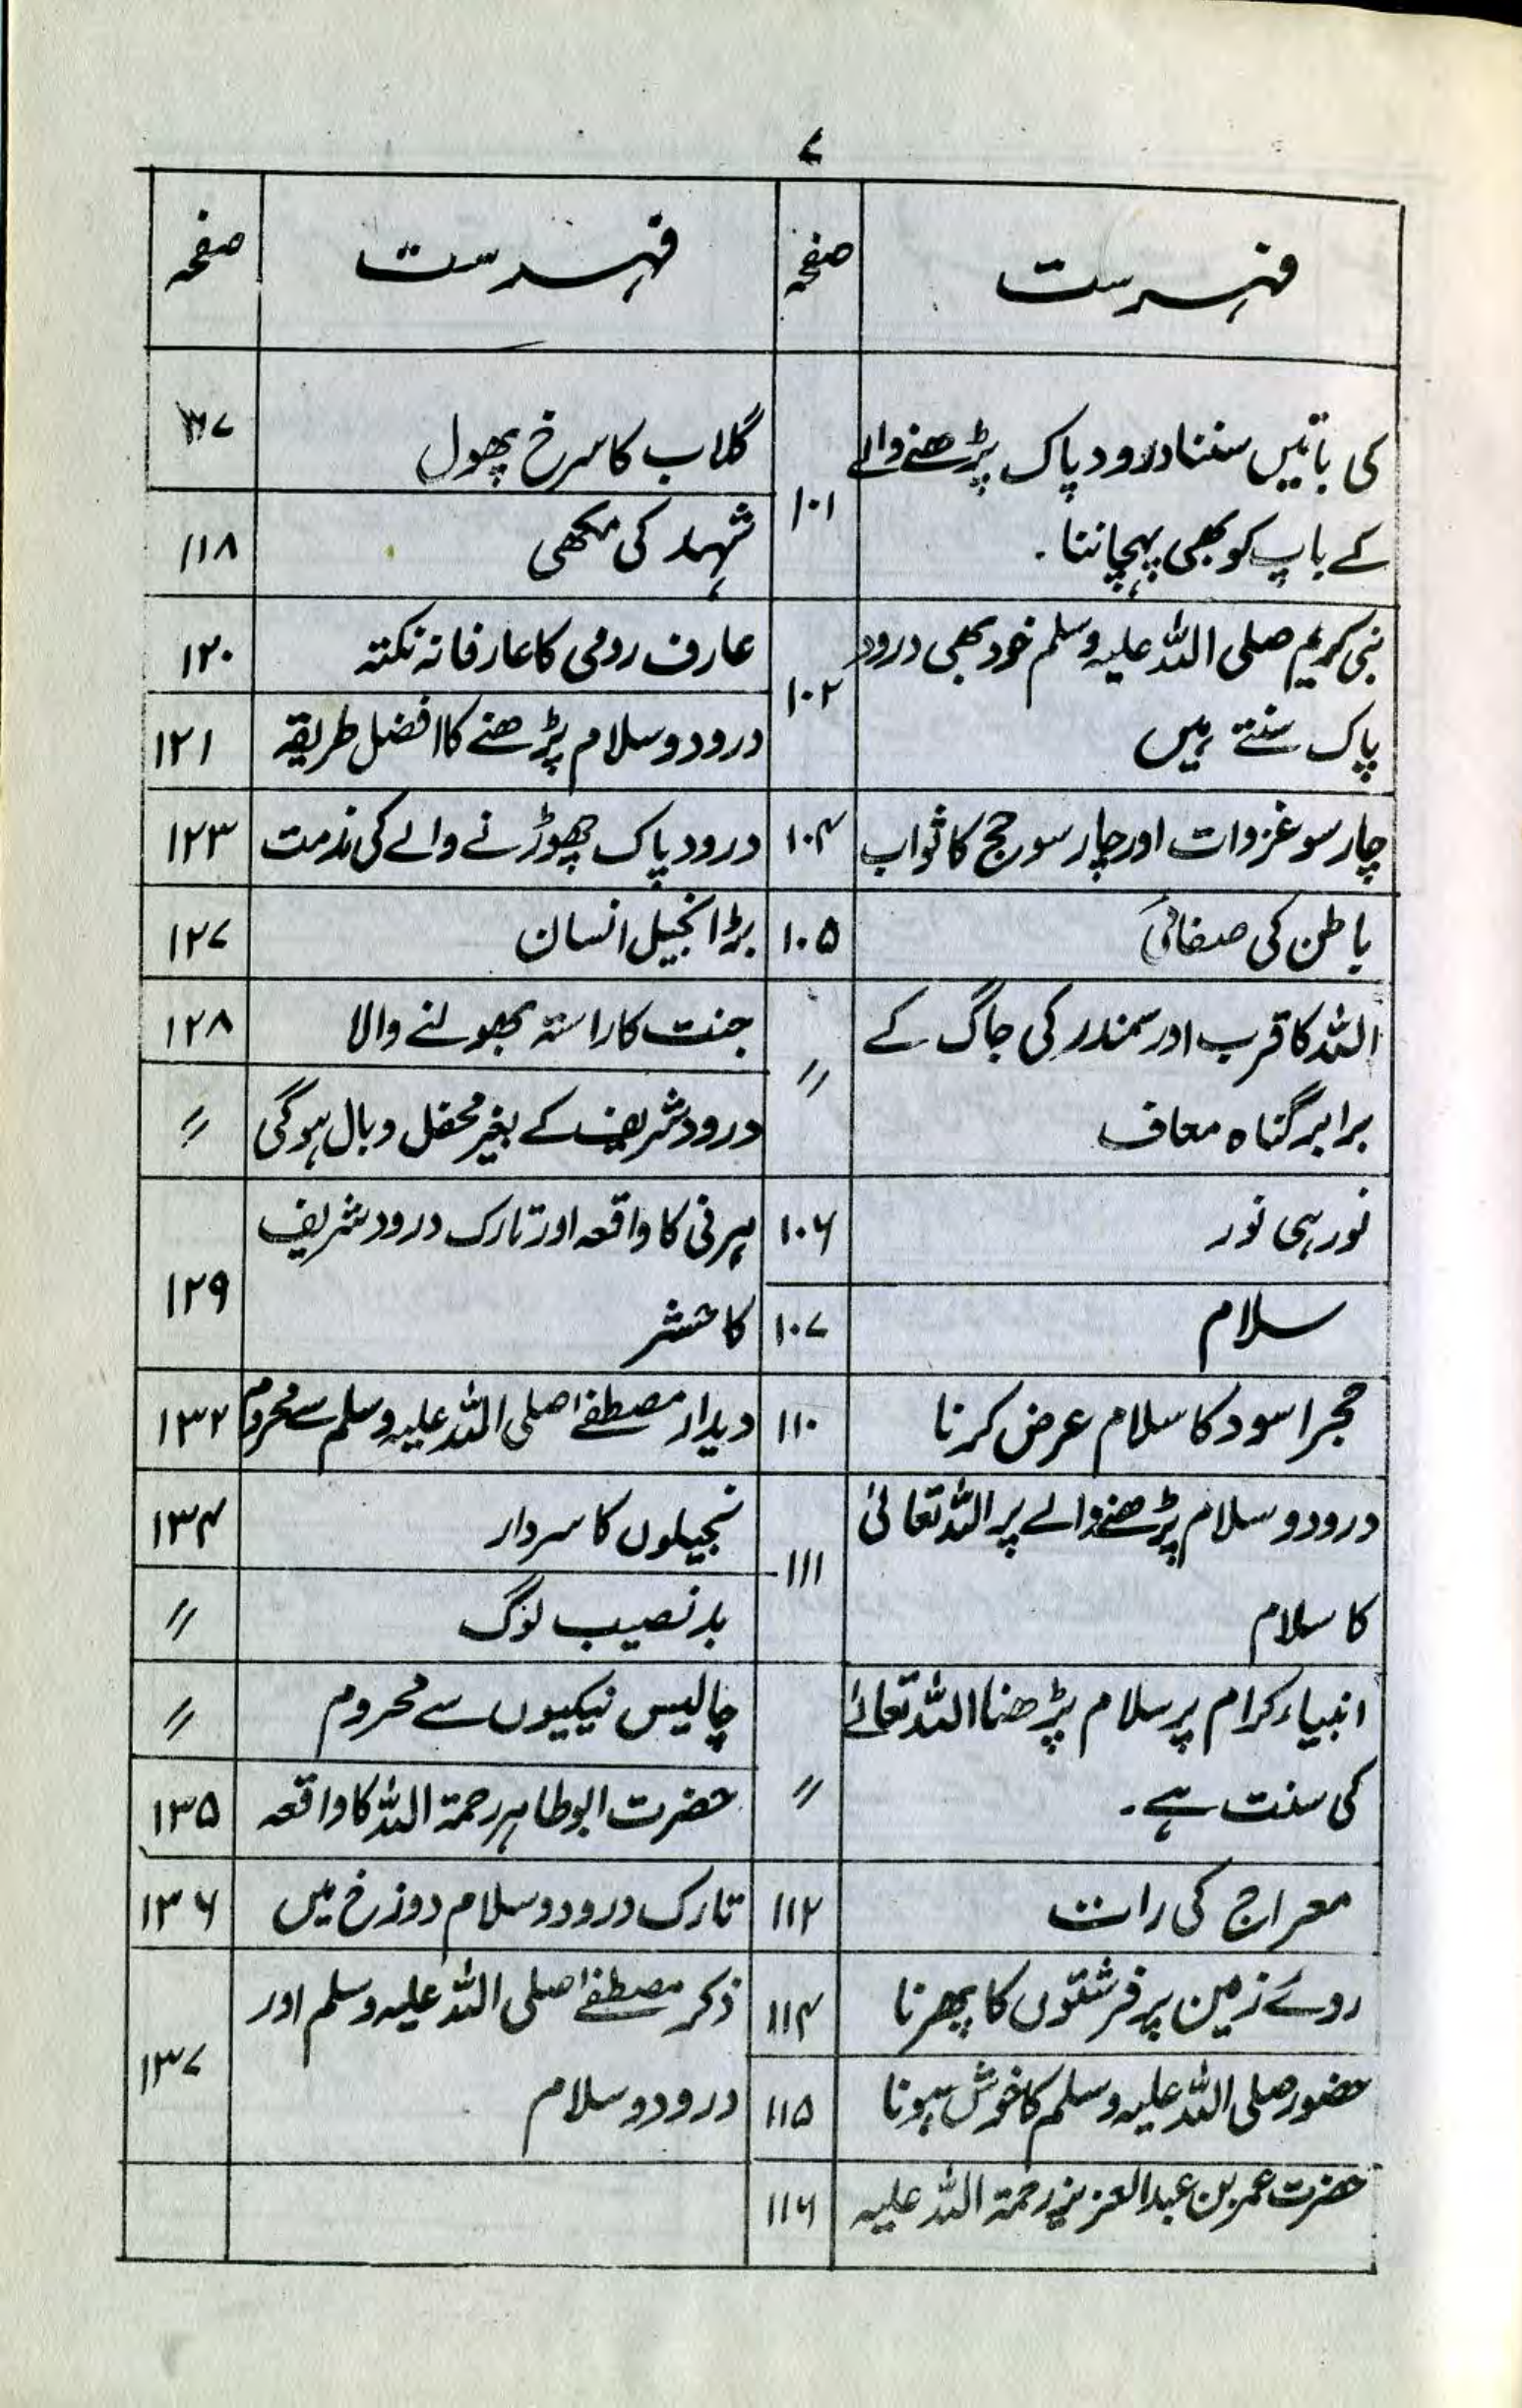 ۷
فہرست صفحہ
کی باتیں سننا درود پاک پڑھنے والے
کے باپ کو بھی پہچاننا۔ ۱۰۱
نبی کریم صلی اللہ علیہ وسلم خود بھی درود
پاک سنتے ہیں ۱۰۲
چار سو غزوات اور چار سو حج کا ثواب ۱۰۴
باطن کی صفائی ۱۰۵
اللہ کا قرب اور سمندر کی جاگ کے
برابر گناہ معاف 〃
نور ہی نور ۱۰۶
سلام ۱۰۷
حجر اسود کا سلام عرض کرنا ۱۱۰
درود و سلام پڑھنے والے پر اللہ تعالیٰ
کا سلام ۱۱۱
انبیاء کرام پر سلام پڑھنا اللہ تعالیٰ
کی سنت ہے۔ 〃
معراج کی رات ۱۱۲
روئے زمین پر فرشتوں کا پھرنا ۱۱۴
حضور صلی اللہ علیہ وسلم کا خوش ہونا ۱۱۵
حضرت عمر بن عبدالعزیز رحمۃ اللہ علیہ ۱۱۶
فہرست صفحہ
گلاب کا سرخ پھول ۱۱۷
شہد کی مکھی ۱۱۸
عارف رومی کا عارفانہ نکتہ ۱۲۰
درود و سلام پڑھنے کا افضل طریقہ ۱۲۱
درود پاک چھوڑنے والے کی مذمت ۱۲۳
بڑا بخیل انسان ۱۲۷
جنت کا راستہ بھولنے والا ۱۲۸
درود شریف کے بغیر محفل وبال ہوگی 〃
ہرنی کا واقعہ اور تارک درود شریف
کا حشر ۱۲۹
دیدار مصطفےٰ صلی اللہ علیہ وسلم سے محروم ۱۳۲
بخیلوں کا سردار ۱۳۴
بدنصیب لوگ 〃
چالیس نیکیوں سے محروم 〃
حضرت ابوطاہر رحمۃ اللہ کا واقعہ ۱۳۵
تارک درود و سلام دوزخ میں ۱۳۶
ذکر مصطفےٰ صلی اللہ علیہ وسلم اور
درود و سلام ۱۳۷